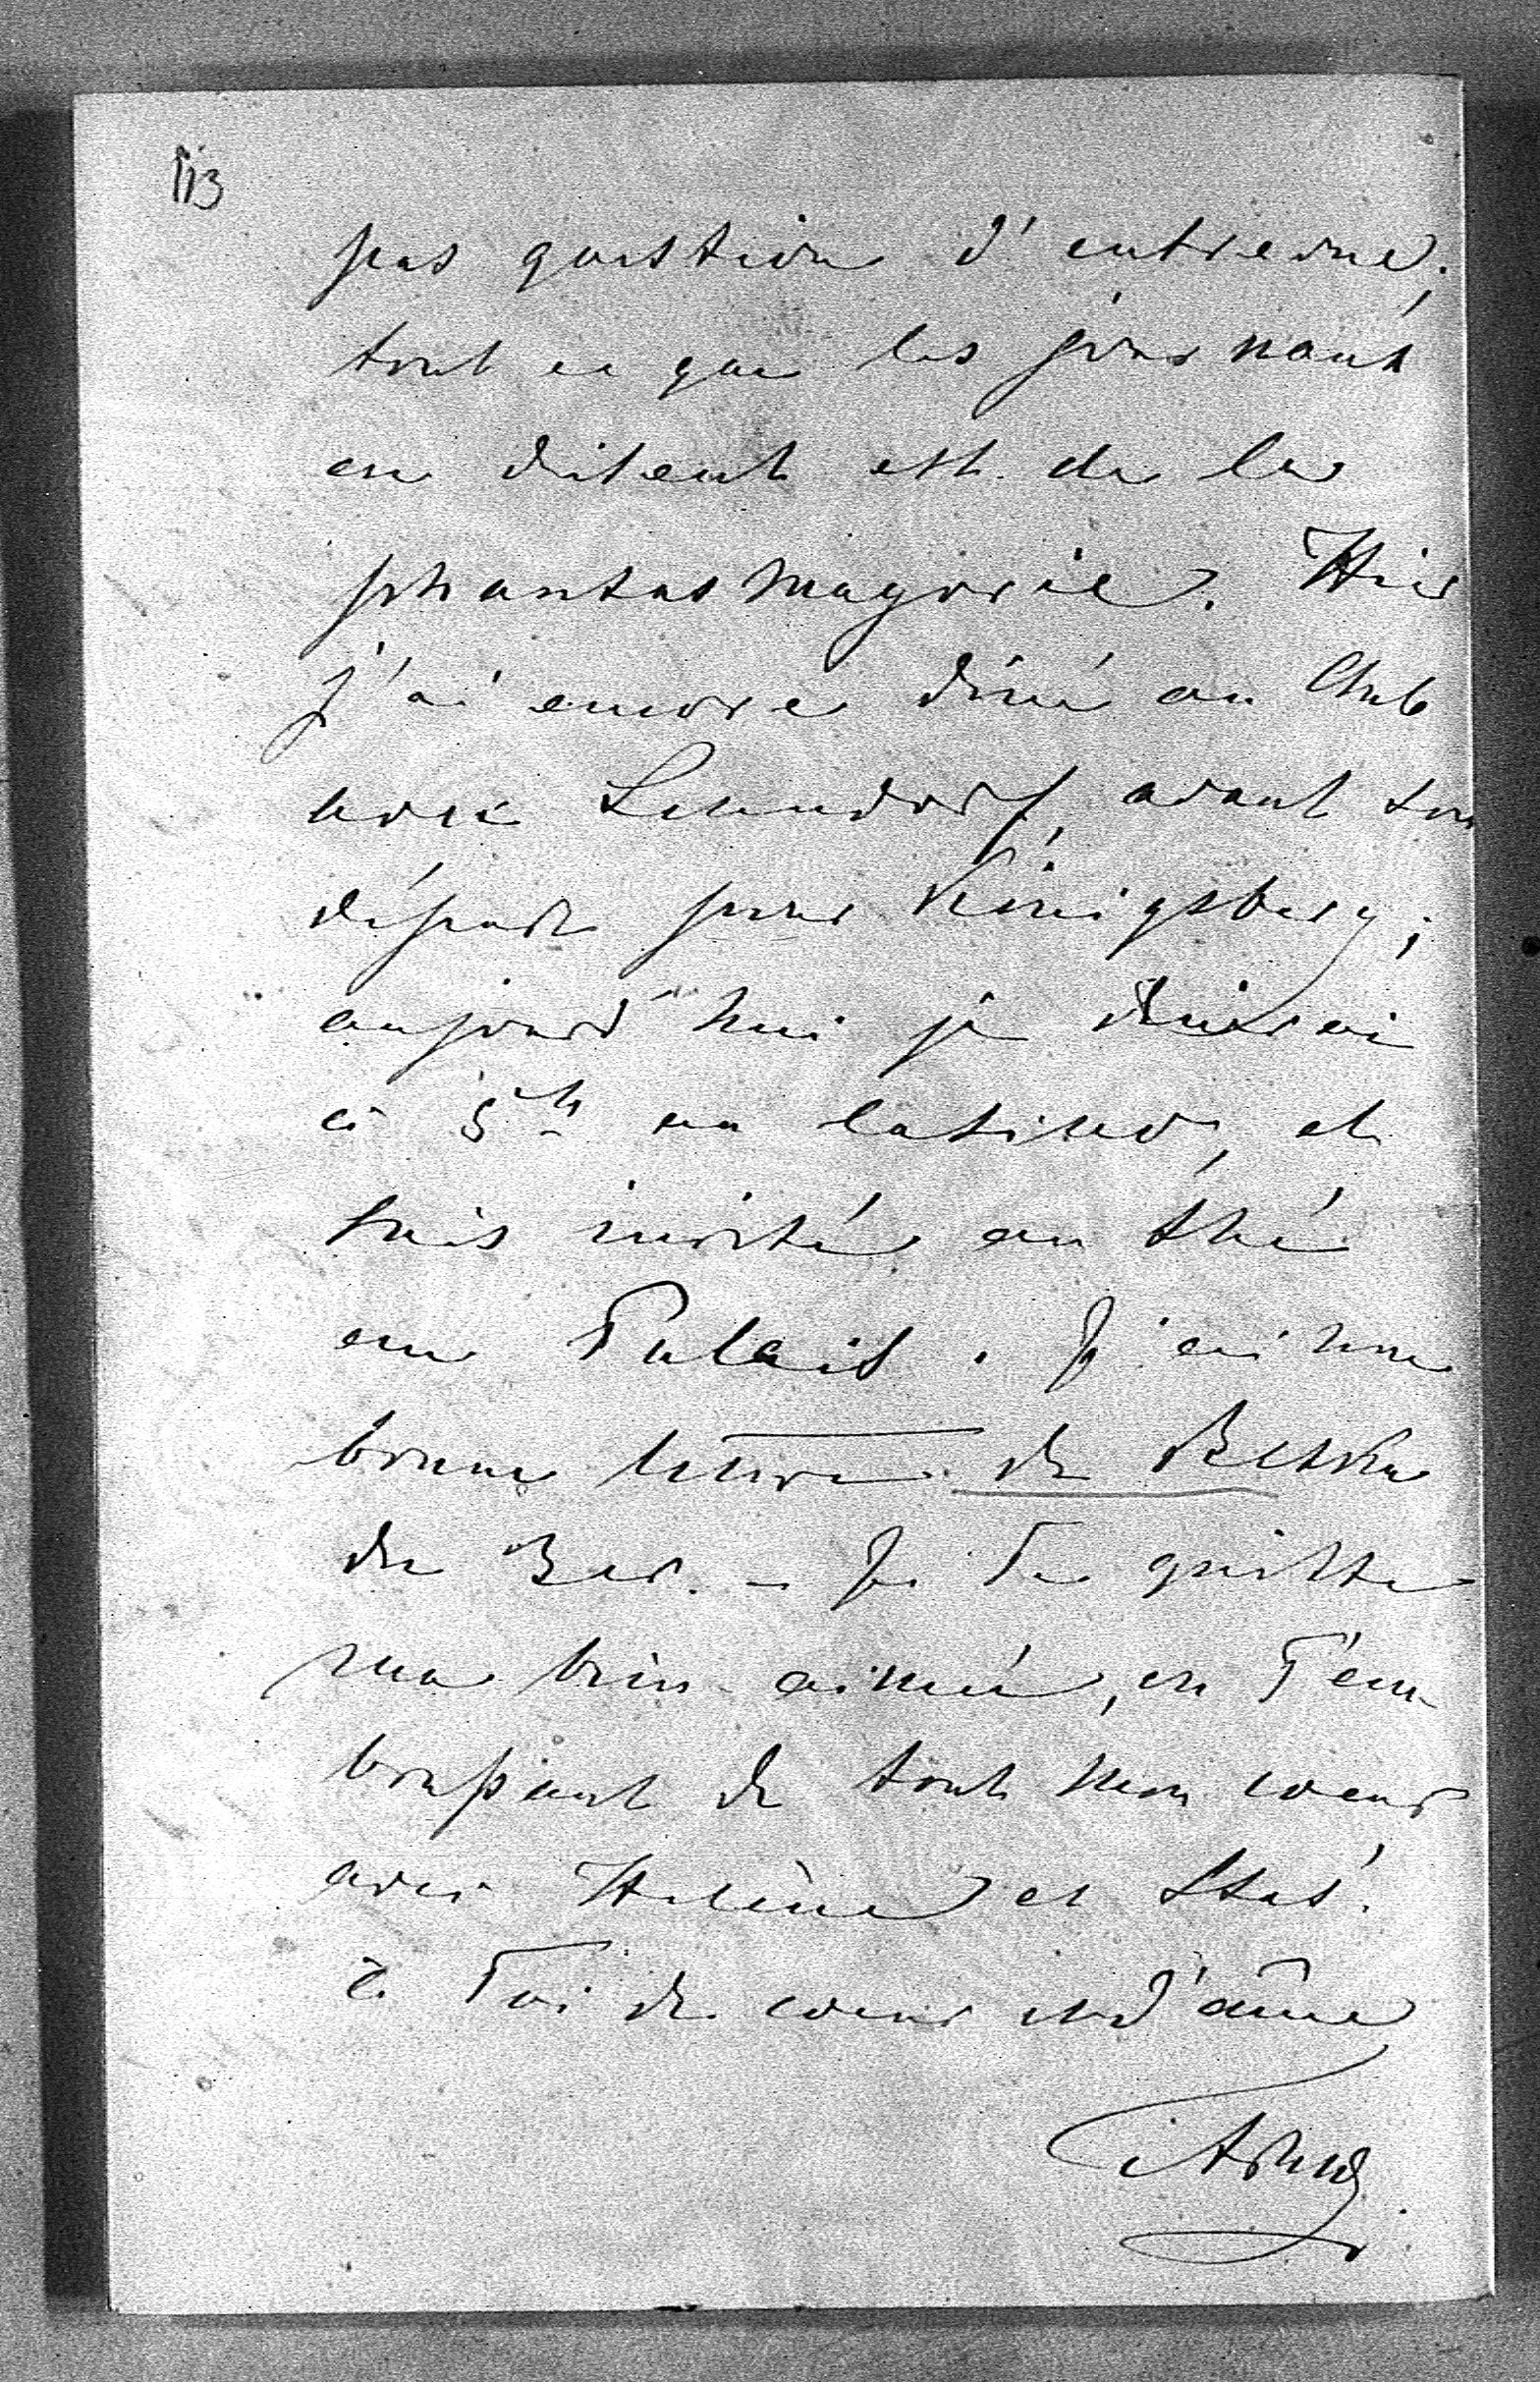 113
pas question d'entrevue;
tout ce que les journaux
en disent est de la
phantasmagorie. Hier
j'ai encore diné au Club
avec Lehndorf, avant son
départ pour Königsberg;
aujourd'hui je dinerai
à 5h au Casino, et
suis invité au thé
au Palais. J'ai une
bonne lettre de
de Ber. - Je Te quitte
ma bien-aimée, en T'em-
brassant de tout mon coeur
avec Helène et Stas.
à Toi de coeur et d'âme